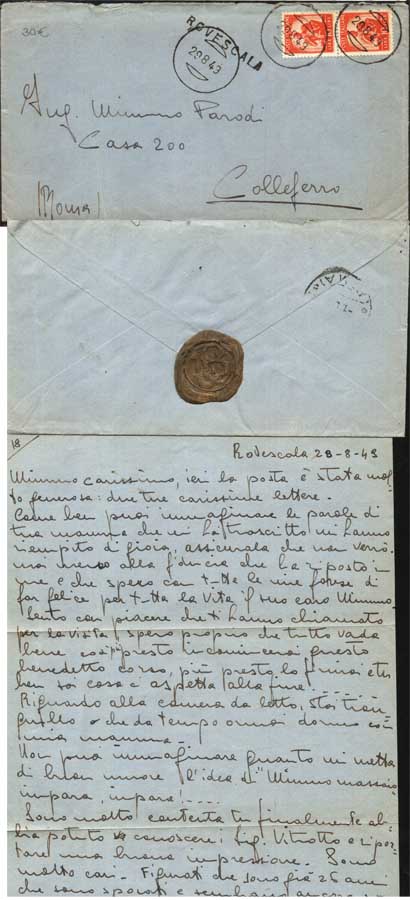 30€
ROVESCALA
29.8.43
Ing. Mimmo Parodi
Casa 200
Colleferro
(Roma)
18
Rovescala 29-8-43
Mimmo carissimo, ieri la posta è stata mol-
to generosa: due tue carissime lettere.
Come ben puoi immaginare le parole di
tua mamma che mi hai trascritto mi hanno
riempito di gioia, assicurala che non verrò
mai meno alla fiducia che ha riposto in
me e che spero con tutte le mie forze di
far felice per tutta la vita il suo caro Mimmo.
Sento con piacere che ti hanno chiamato
per la visita e spero proprio che tutto vada
bene così presto incomincerai questo
benedetto corso, più presto lo finirai e tu
ben sai cosa ci aspetta alla fine
Riguardo alla camera da letto, stai tran
quillo che da tempo ormai dormo con
mia mamma.
Non puoi immaginare quanto mi metta
di buon umore l'idea di "Mimmo massaio"
impara, impara!....
Sono molto contenta tu finalmente ab-
bia potuto conoscere i Sig. Vitrotto e ripor-
tare una buona impressione. Sono
molto cari. Figurati che sono già 26 anni
che sono sposati e sembrano ancora